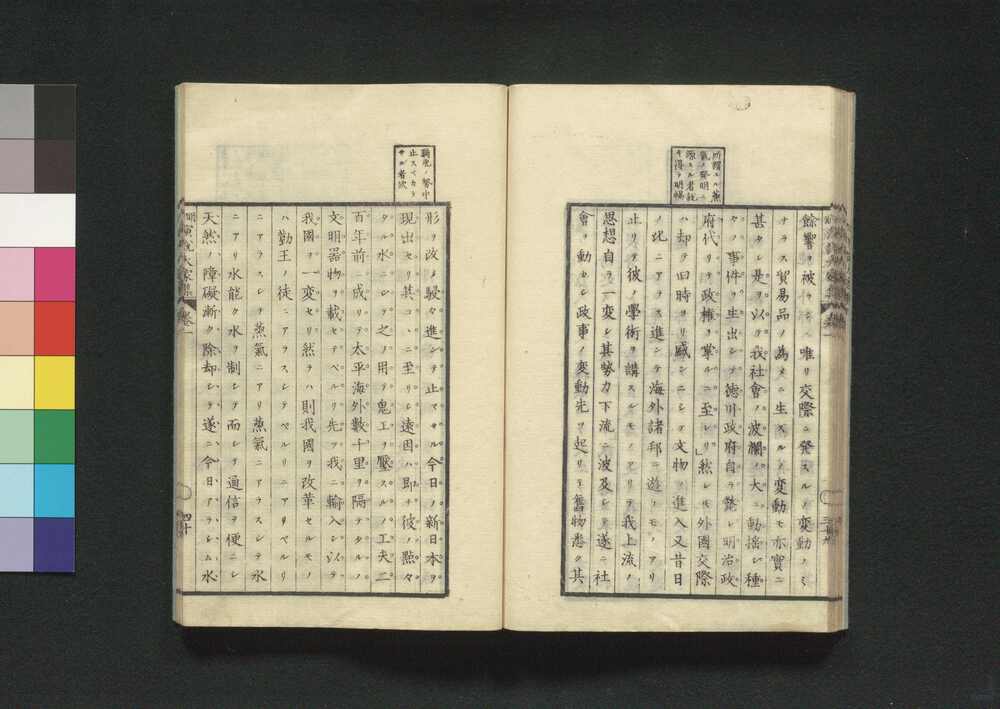 所謂ユル蒸
氣ノ發明ニ
源スル者就
キ得テ明暢
餘響ヲ被ムルニ唯リ交際ニ発スルノ変動ノミ
ナラス貿易品ノ為メニ生スルノ変動モ亦實ニ
甚タシ是ヲ以テ我社會ノ波瀾ノ大ニ動揺シ種
々ノ事件ヲ生出シテ德川政府自ラ斃レ明治政
府代リテ政権ヲ掌ルニ至レリ」然レモ外國交際
ハ却テ旧時ヨリ盛ンニシテ文物ノ進入又昔日
ノ比ニアラス進ンテ海外諸邦ニ遊フモノアリ
止リテ彼ノ學術ヲ講スルモノアリテ我上流ノ
思想自ラ一変シ其勢力下流ニ波及シテ遂ニ社
會ヲ動カシ政事ノ変動先ツ起リ舊物悉ク其
三十九
騎虎ノ勢中
止スベカラ
サル者欤
形ヲ改メ駸々進ンテ止マサル今日ノ新日本ヲ
現出セリ其コヽニ至リシ遠因ハ即チ彼ノ點々
タル水ニシテ之ノ用ヲ鬼工ヲ壓スルノ工夫二
百年前ニ成リテ太平海外数千里ヲ隔テタルノ
文明器物ヲ載セテペルリ先ツ我ニ輸入シ以テ
我國ヲ一変セリ然ラハ則我國ヲ改革セルモノ
ハ勤王ノ徒ニアラスシテペルリニアリペルリ
ニアラスシテ蒸氣ニアリ蒸氣ニアラスシテ水
ニアリ水能ク水ヲ制シテ而シテ通信ヲ便ニシ
天然ノ障礙漸ク除却シテ遂ニ今日アラシム水
演説大家集 卷一
四十